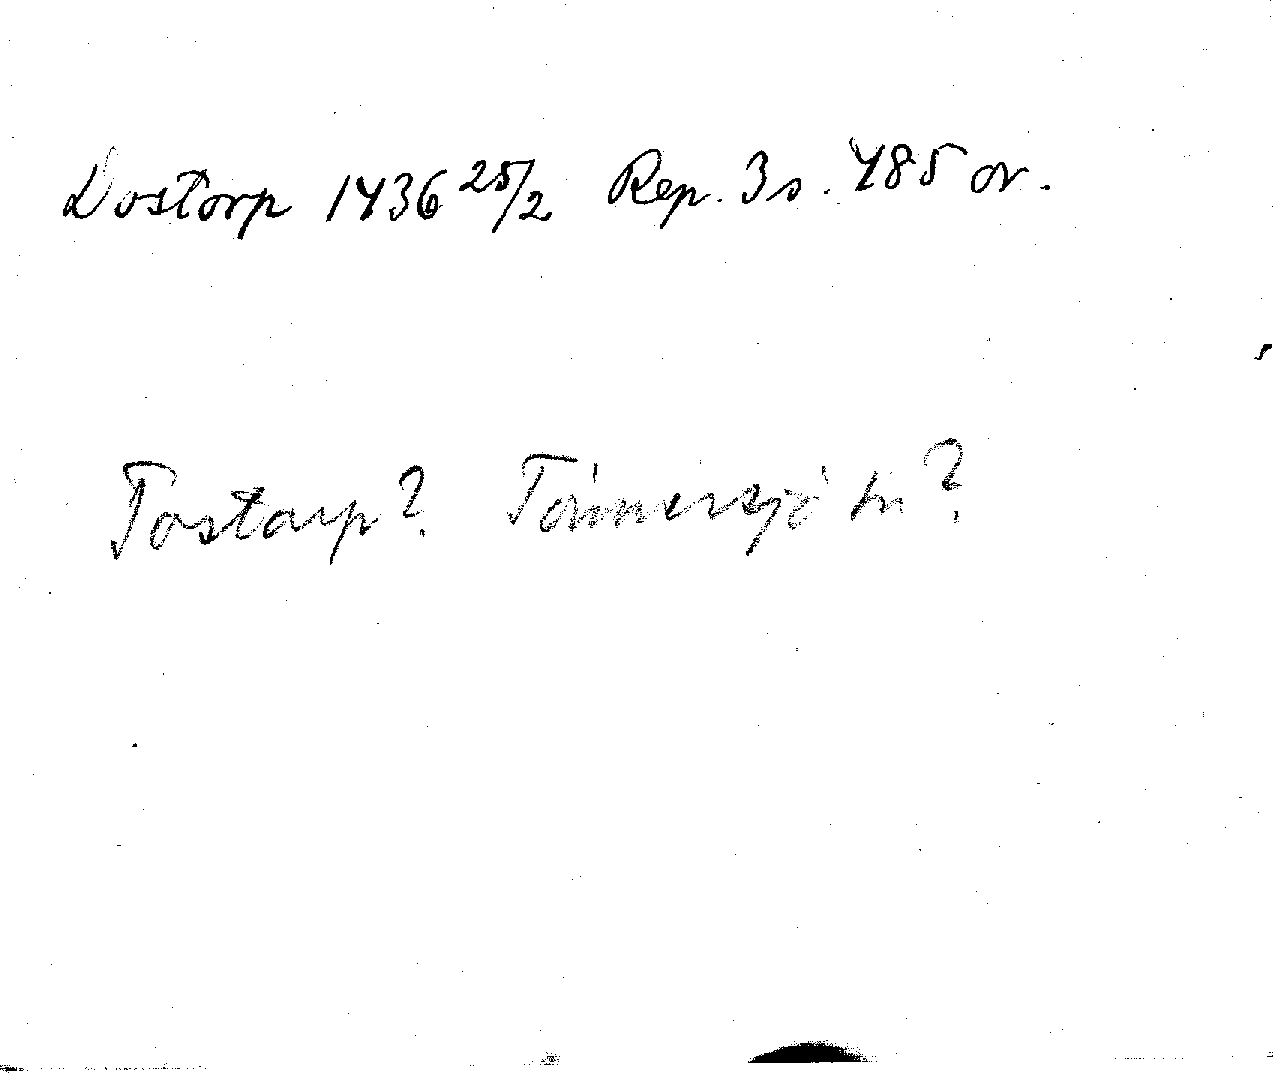 Dostorp 1436 25/2 Rep. 3 s. 485 or.
Tostarp? Tönnersjö sn?